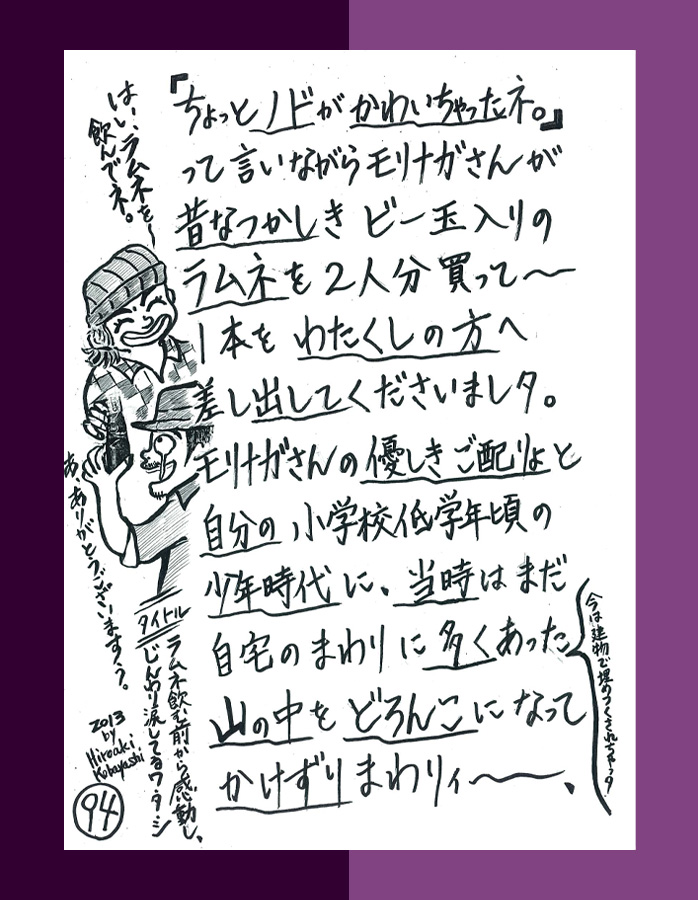 『ちょっとノドがかわいちゃったネ。』
って言いながらモリナガさんが
昔なつかしきビー玉入りの
ラムネを2人分買って〜
1本をわたくしの方へ
差し出してくださいましタ。
モリナガさんの優しきご配りょと
自分の小学校低学年頃の
少年時代に、当時はまだ
自宅のまわりに多くあった
山の中をどろんこになって
かけずりまわりィ〜、
今は建物で埋めつくされちゃっタ
はい、ラムネを〜
飲んでネ。
あ、ありがとうございますぅ。
タイトル
ラムネ飲む前から感動し、
じんわり涙してるワタシ
2013
by
Hiroaki
Kobayashi
94